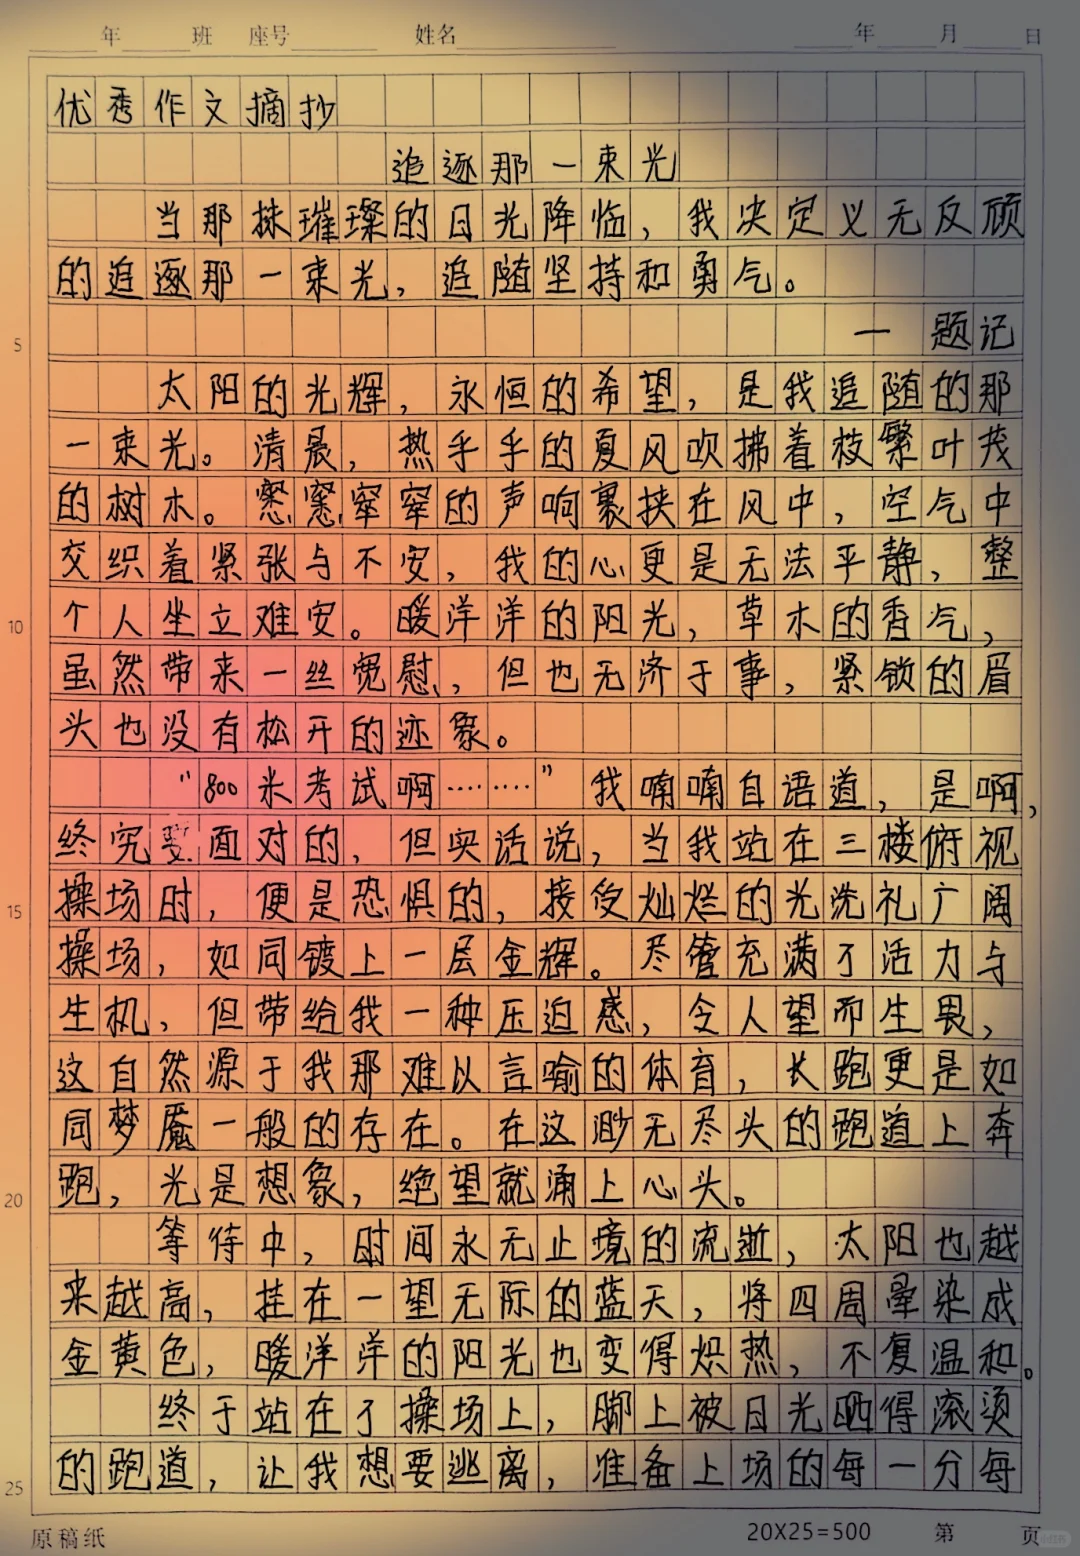 年 班 座号 姓名 年 月 日
优秀作文摘抄
追逐那一束光
当那抹璀璨的日光降临，我决定义无反顾
的追逐那一束光，追随坚持和勇气。
5
一 题记
太阳的光辉，永恒的希望，是我追随的那
一束光。清晨，热乎乎的夏风吹拂着枝繁叶茂
的树木。窸窸窣窣的声响裹挟在风中，空气中
交织着紧张与不安，我的心更是无法平静，整
10
个人坐立难安。暖洋洋的阳光，草木的香气，
虽然带来一丝宽慰，但也无济于事，紧锁的眉
头也没有松开的迹象。
“800米考试啊………”我喃喃自语道，是啊，
终究要面对的，但实话说，当我站在三楼俯视
15
操场时，便是恐惧的，接受灿烂的光洗礼广阔
操场，如同镀上一层金辉。尽管充满了活力与
生机，但带给我一种压迫感，令人望而生畏，
这自然源于我那难以言喻的体育，长跑更是如
同梦魇一般的存在。在这渺无尽头的跑道上奔
20
跑，光是想象，绝望就涌上心头。
等待中，时间永无止境的流逝，太阳也越
来越高，挂在一望无际的蓝天，将四周晕染成
金黄色，暖洋洋的阳光也变得炽热，不复温和。
终于站在了操场上，脚上被日光晒得滚烫
25
的跑道，让我想要逃离，准备上场的每一分每
原稿纸 20X25=500 第 页